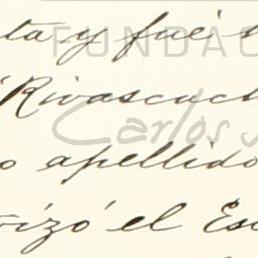 ta y fué
Rivascach
apellido
rizó el Es
FUNDAC
Carlos